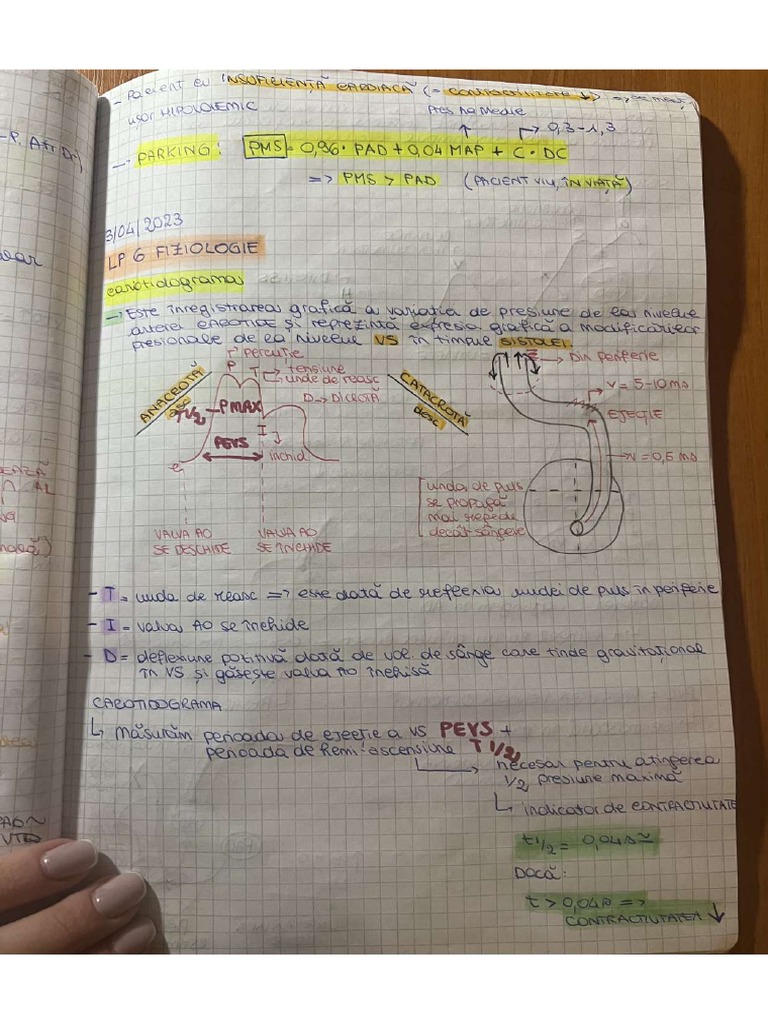 - Pacient cu INSUFICIENȚĂ CARDIACĂ (= CONTRACTILITATE ↓) =>
ușor HIPOVOLEMIC
Pres. Aa Medie
→ 0,3-1,3
→ PARKING: PMS = 0,96 · PAD + 0,04 MAP + C · DC
=> PMS > PAD (PACIENT VIU, ÎN VIAȚĂ)
3/04/2023
LP 6 FIZIOLOGIE
carotidograma
→ Este înregistrarea grafică a variația de presiune de la nivelul
arterei CAROTIDE și reprezintă expresia grafică a modificărilor
presionale de la nivelul VS în timpul SISTOLEI.
percuție
P T → tensiune
unde de reasc
D → DICROTĂ
ANACROTĂ
asc
CATACROTĂ
desc
T1/2 - PMAX
I
PEVS
închid
e
VALVA AO
SE DESCHIDE
VALVA AO
SE ÎNCHIDE
→ Din periferie
V = 5-10 ms
EJECȚIE
→ v = 0,5 ms
unda de puls
se propagă
mai repede
decât sângele
- T = unda de reasc => este dată de reflexia undei de puls în periferie
- I = valva AO se închide
- D = deflexiune pozitivă dată de vol. de sânge care tinde gravitațional
în VS și găsește valva AO închisă
CAROTIDOGRAMA
↳ măsurăm perioada de ejecție a VS PEVS +
perioada de hemi-ascensiune T 1/2
→ necesar pentru atingerea
1/2 presiune maximă
↳ indicator de CONTRACTILITATE
t1/2 = 0,04s ≃
Dacă:
t > 0,04s =>
CONTRACTILITATEA ↓